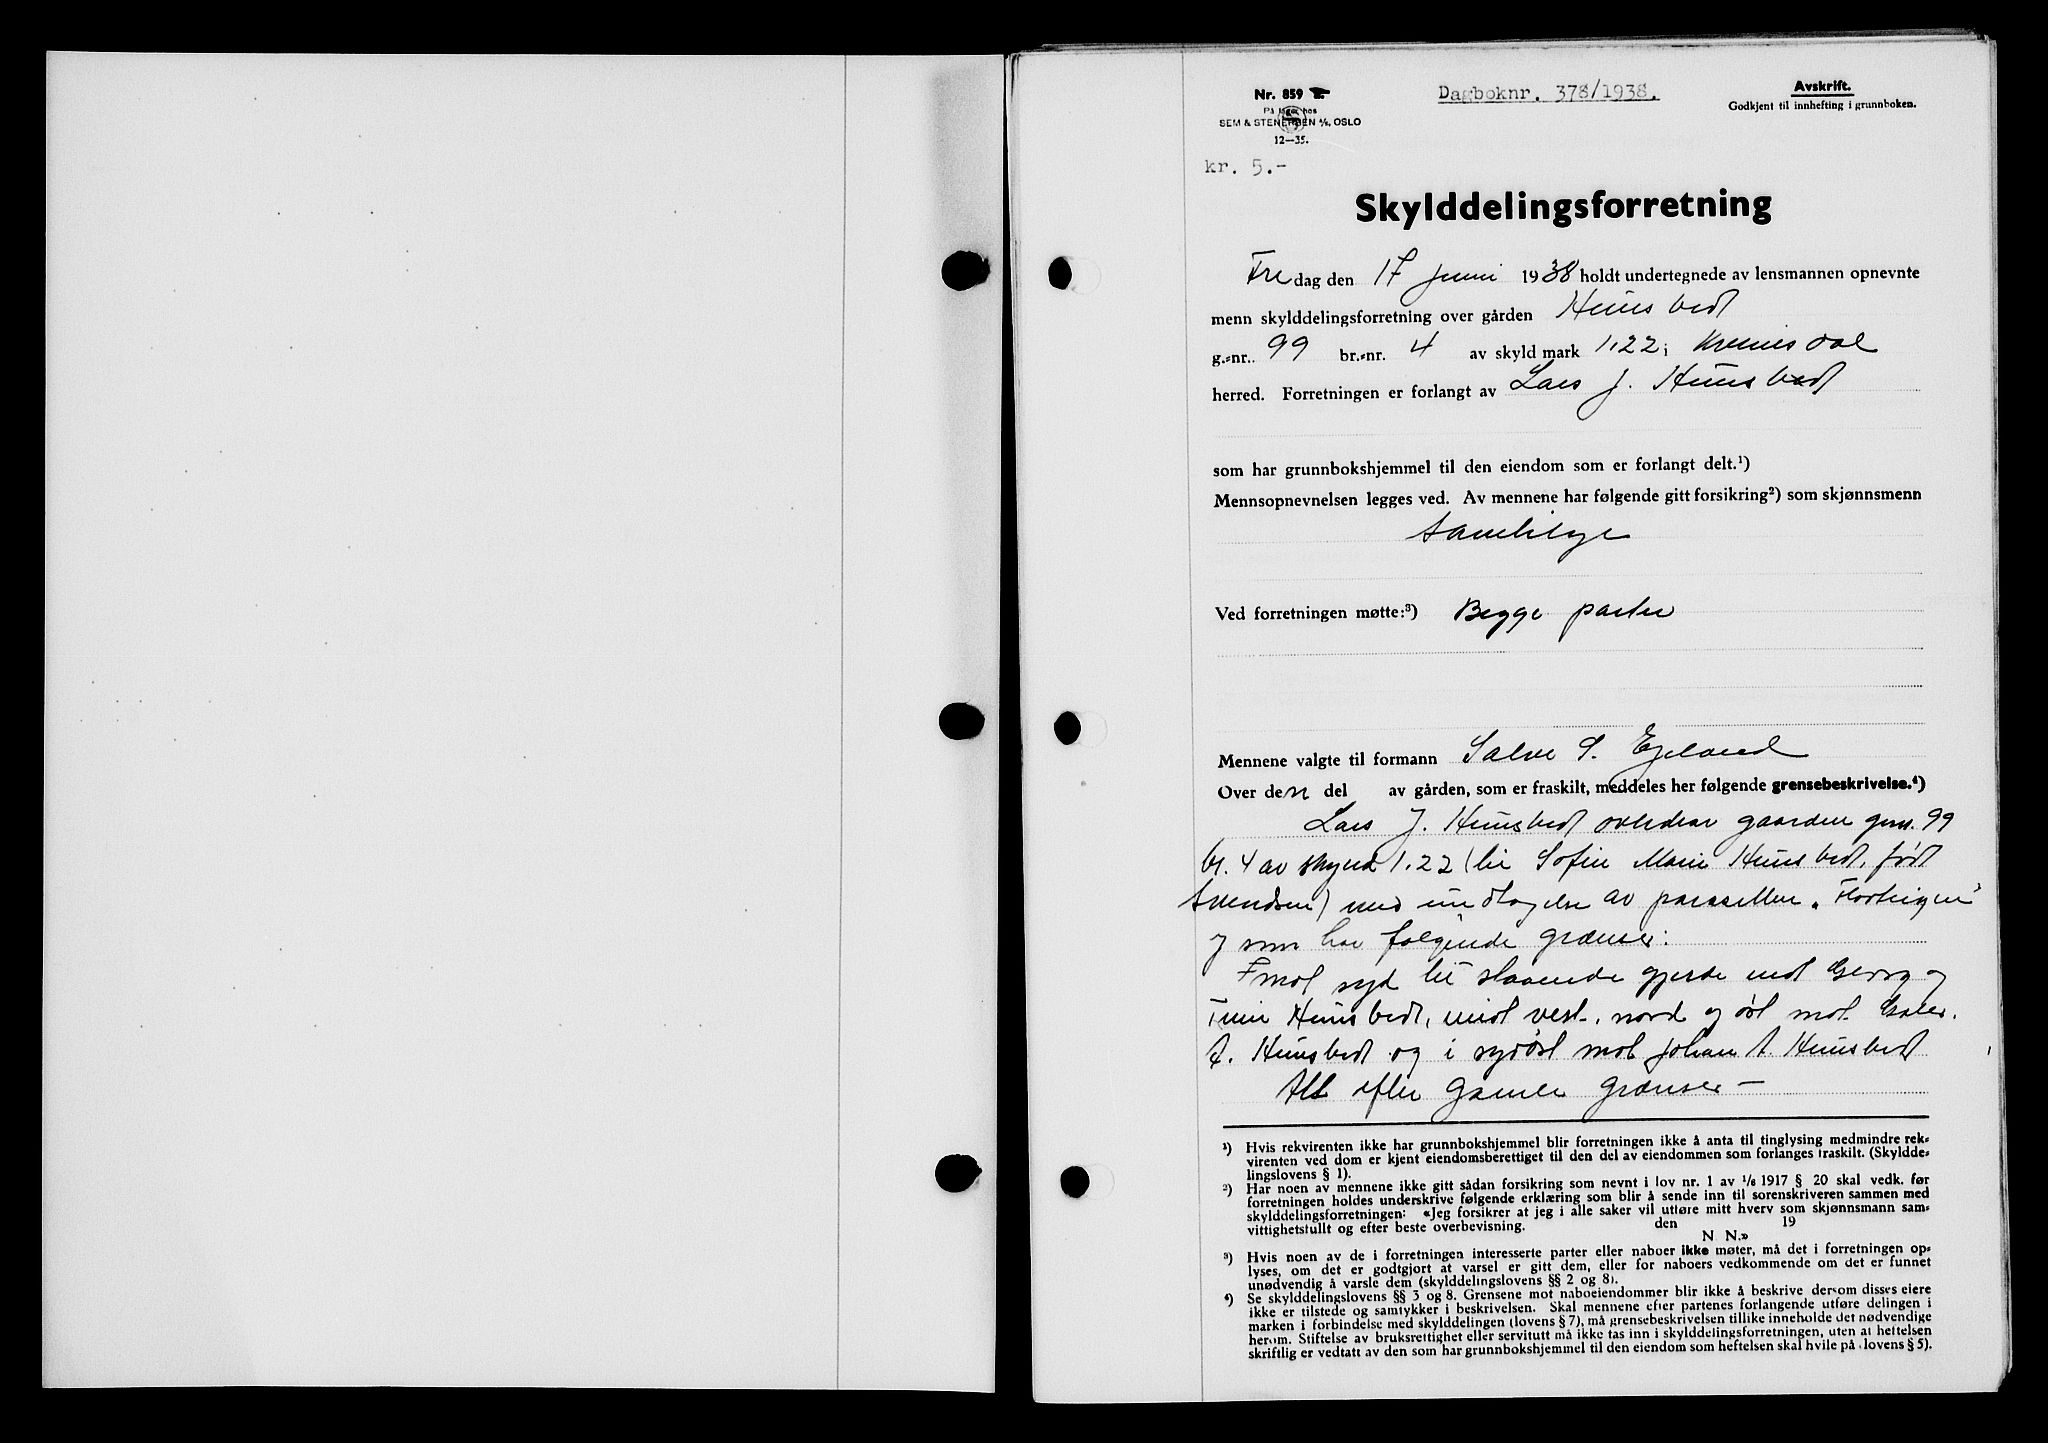 Nr. 859
Dagboknr. 378/1938.
Avskrift.
Godkjent til innhefting i grunnboken.
På lager hos
SEM & STENERSEN A/S, OSLO
12—35.
kr. 5.-
Skylddelingsforretning
Fredag den 17 juni 1938 holdt undertegnede av lensmannen opnevnte
menn skylddelingsforretning over gården Hunsbedt
g.-nr. 99 br.-nr. 4 av skyld mark 1.22 i Kvinesdal
herred. Forretningen er forlangt av Lars J. Hunsbedt
som har grunnbokshjemmel til den eiendom som er forlangt delt.¹)
Mennsopnevnelsen legges ved. Av mennene har følgende gitt forsikring²) som skjønnsmenn
samtlige
Ved forretningen møtte:³) Begge parter
Mennene valgte til formann Salve S. Egeland
Over den del av gården, som er fraskilt, meddeles her følgende grensebeskrivelse.⁴)
Lars J. Hunsbedt overdrar gaarden gnr. 99
br. 4 av skyld 1.22 (til Sofie Marie Hunsbedt, født
Svendsen) med undtagelse av parsellen
som har følgende grænser:
mot syd til staaende gjerde mot Georg og
Hunsbedt, mot vest, nord og øst mot
A. Hunsbedt og i sydøst mot Johan A. Hunsbedt
Alt efter gamle grænser —
¹) Hvis rekvirenten ikke har grunnbokshjemmel blir forretningen ikke å anta til tinglysing medmindre rek-
virenten ved dom er kjent eiendomsberettiget til den del av eiendommen som forlanges fraskilt. (Skyldde-
lingslovens § 1).
²) Har noen av mennene ikke gitt sådan forsikring som nevnt i lov nr. 1 av 1/6 1917 § 20 skal vedk. før
forretningen holdes underskrive følgende erklæring som blir å sende inn til sorenskriveren sammen med
skylddelingsforretningen: «Jeg forsikrer at jeg i alle saker vil utføre mitt hverv som skjønnsmann sam-
vittighetsfullt og efter beste overbevisning. den 19
N. N.»
³) Hvis noen av de i forretningen interesserte parter eller naboer ikke møter, må det i forretningen op-
lyses, om det er godtgjort at varsel er gitt dem, eller for naboers vedkommende om det er funnet
unødvendig å varsle dem (skylddelingslovens §§ 2 og 8).
⁴) Se skylddelingslovens §§ 3 og 8. Grensene mot naboeiendommer blir ikke å beskrive dersom disses eiere
ikke er tilstede og samtykker i beskrivelsen. Skal mennene efter partenes forlangende utføre delingen i
marken i forbindelse med skylddelingen (lovens § 7), må grensebeskrivelsen tillike inneholde det nødvendige
herom. Stiftelse av bruksrettighet eller servitutt må ikke tas inn i skylddelingsforretningen, uten at heftelsen
skriftlig er vedtatt av den som har grunnbokshjemmel til den eiendom som heftelsen skal hvile på (lovens § 5).